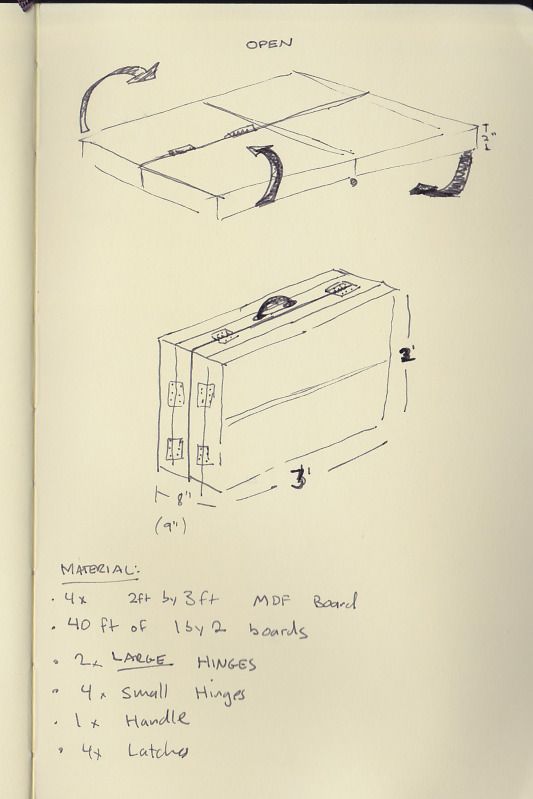 OPEN
2"
2'
3'
8"
(9")
MATERIAL:
• 4x 2ft by 3ft MDF Board
• 40 ft of 1 by 2 boards
• 2x LARGE HINGES
• 4x Small Hinges
• 1x Handle
• 4x Latches